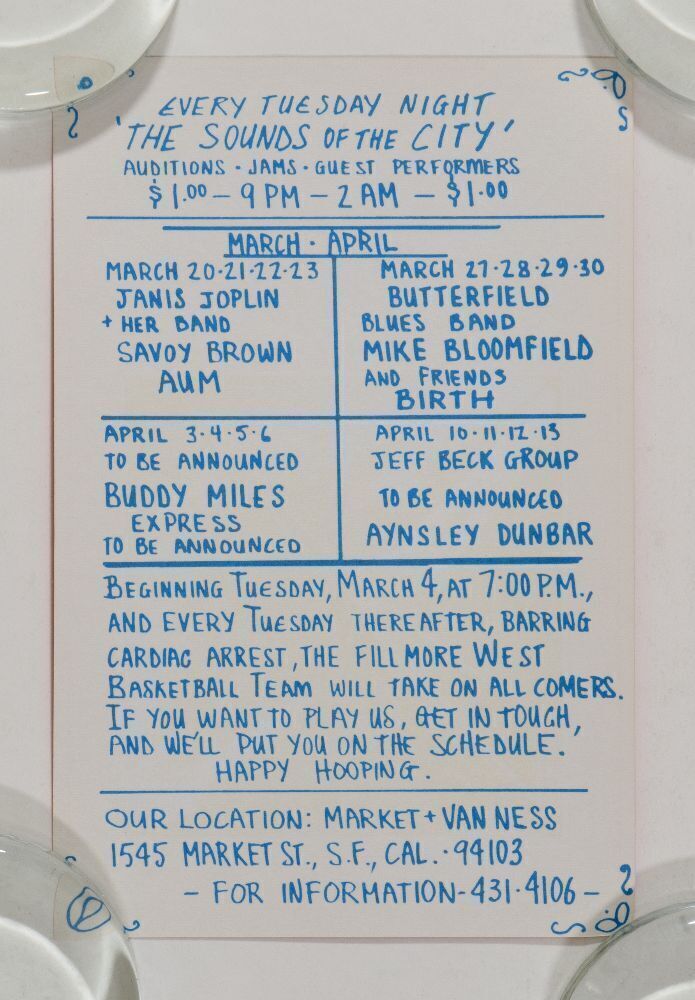 EVERY TUESDAY NIGHT
'THE SOUNDS OF THE CITY'
AUDITIONS · JAMS · GUEST PERFORMERS
$1.00 – 9 PM – 2 AM – $1.00
MARCH · APRIL
MARCH 20·21·22·23
JANIS JOPLIN
+ HER BAND
SAVOY BROWN
AUM
MARCH 27·28·29·30
BUTTERFIELD
BLUES BAND
MIKE BLOOMFIELD
AND FRIENDS
BIRTH
APRIL 3·4·5·6
TO BE ANNOUNCED
BUDDY MILES
EXPRESS
TO BE ANNOUNCED
APRIL 10·11·12·13
JEFF BECK GROUP
TO BE ANNOUNCED
AYNSLEY DUNBAR
BEGINNING TUESDAY, MARCH 4, AT 7:00 P.M.,
AND EVERY TUESDAY THEREAFTER, BARRING
CARDIAC ARREST, THE FILLMORE WEST
BASKETBALL TEAM WILL TAKE ON ALL COMERS.
IF YOU WANT TO PLAY US, GET IN TOUCH,
AND WE'LL PUT YOU ON THE SCHEDULE.
HAPPY HOOPING.
OUR LOCATION: MARKET + VAN NESS
1545 MARKET ST., S.F., CAL. · 94103
– FOR INFORMATION – 431·4106 –